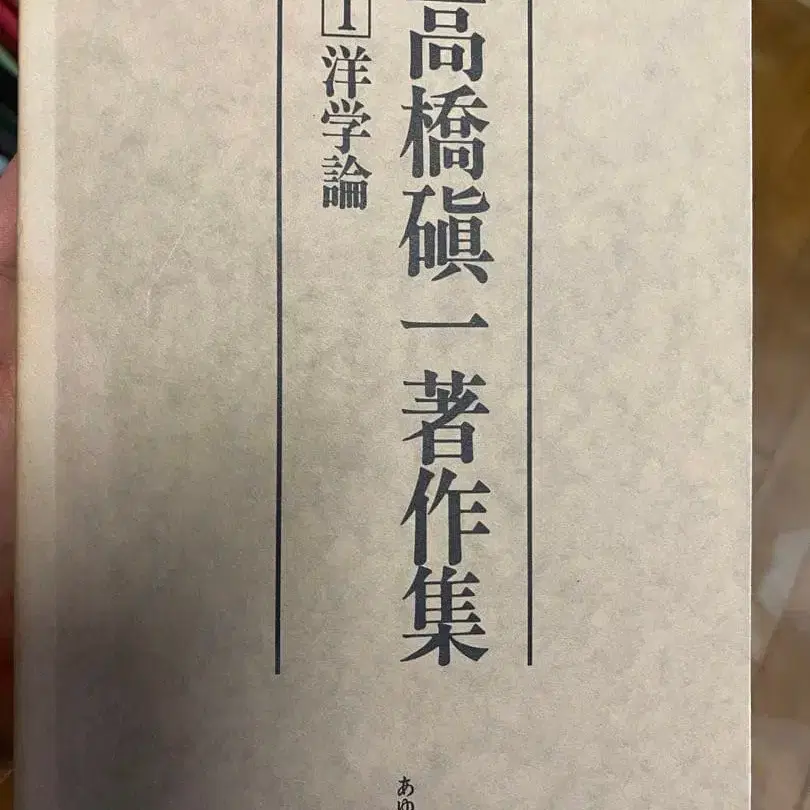 高橋磌一著作集
1 洋学論
あゆ